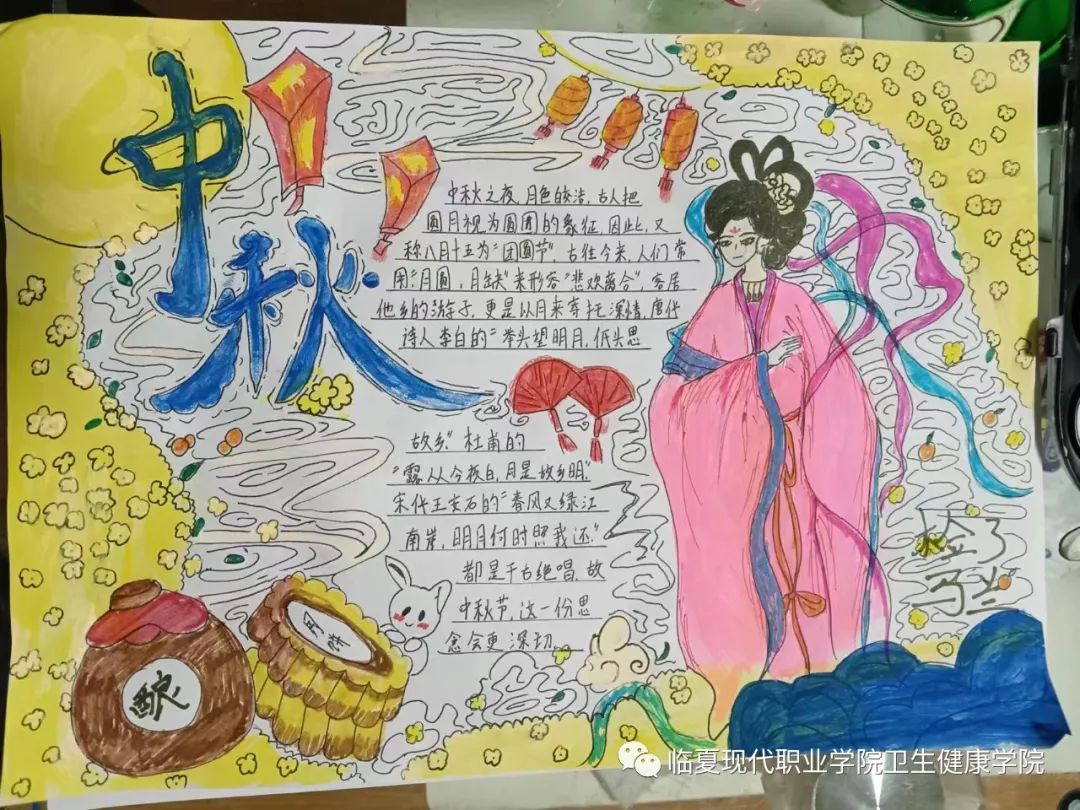 中秋
中秋之夜,月色皎洁,古人把
圆月视为团圆的象征,因此,又
称八月十五为“团圆节”,古往今来,人们常
用“月圆,月缺”来形容“悲欢离合”,客居
他乡的游子,更是以月来寄托深情,唐代
诗人李白的“举头望明月,低头思
故乡”杜甫的
“露从今夜白,月是故乡明”
宋代王安石的“春风又绿江
南岸,明月何时照我还”
都是千古绝唱,故
中秋节,这一份思
念会更深切。
月饼
酿
临夏现代职业学院卫生健康学院